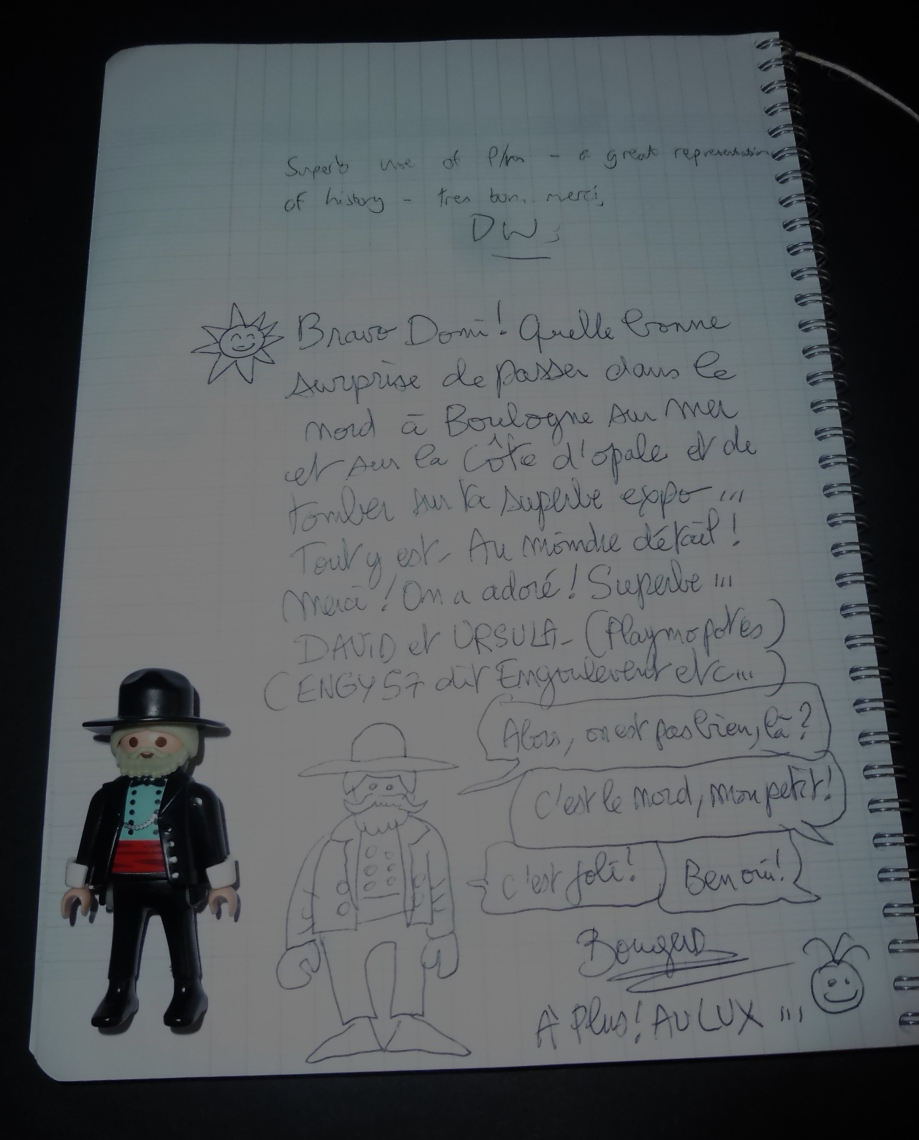 Superb use of P/m - a great representation
of history - tres bon, merci,
DW
Bravo Domi! Quelle bonne
surprise de passer dans le
nord à Boulogne sur mer
et sur la Côte d'opale et de
tomber sur ta superbe expo...
Tout y est - Au moindre détail!
Merci! On a adoré! Superbe...
DAVID et URSULA - (Playmopotes)
(ENGY57 dit Engoulevent etc...)
Alors, on est pas bien, là?
C'est le nord, mon petit!
C'est joli!
Ben oui!
À Plus! AU LUX...